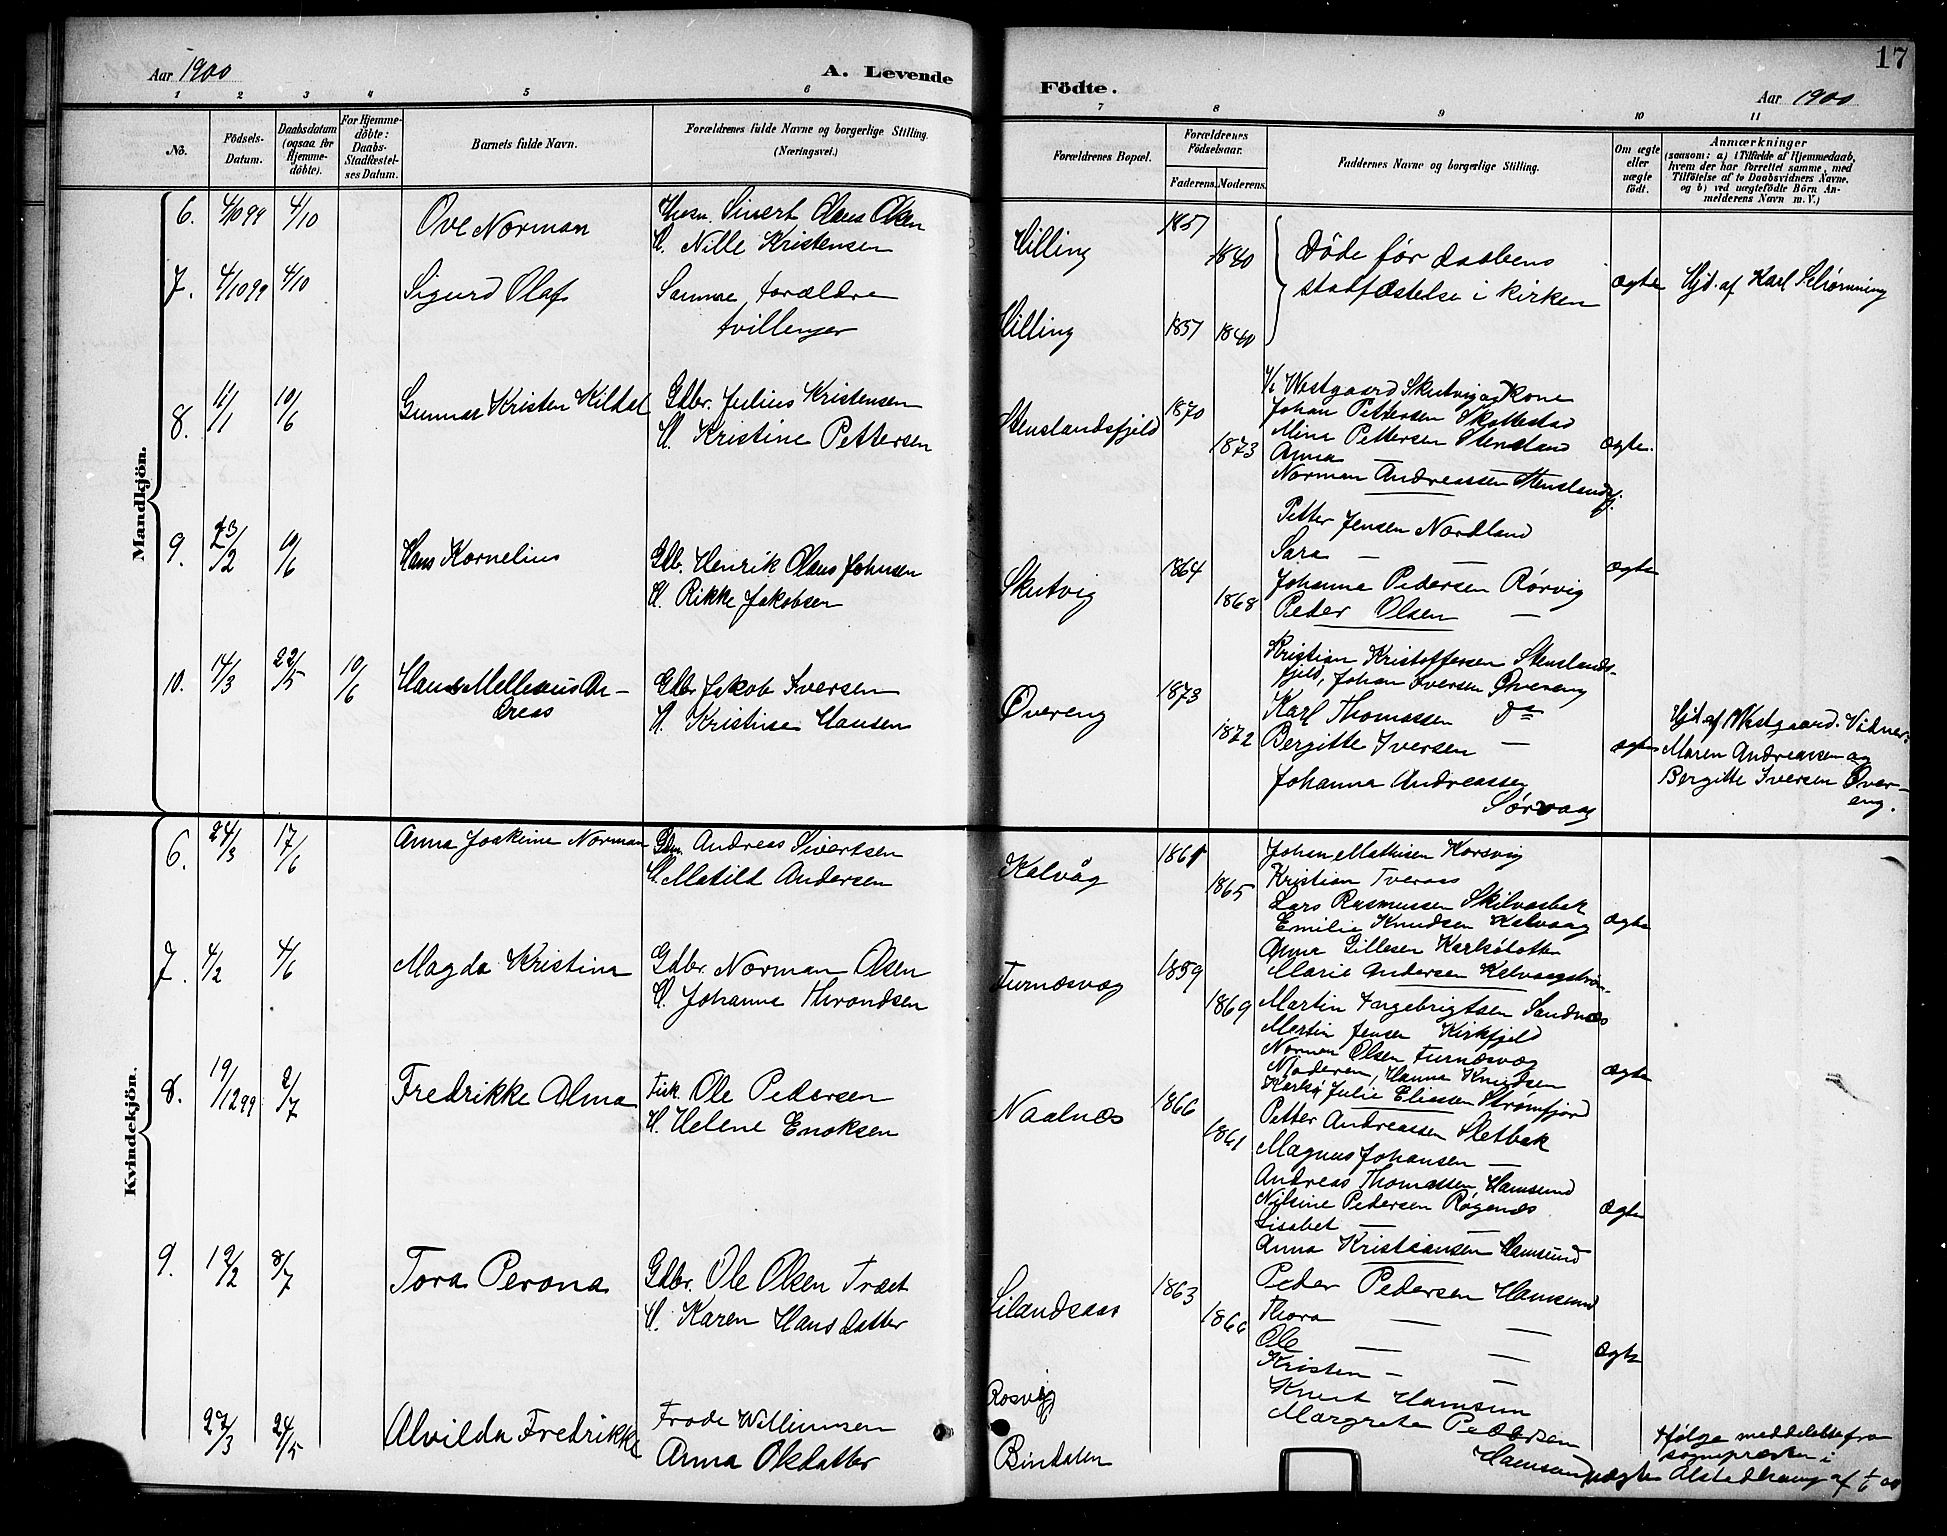 17
Aar 1900
A. Levende
Födte.
Aar 1900
1 2 3 4 5 6 7 8 9 10 11
No.
Födsels-
Datum.
Daabsdatum
(ogsaa for
Hjemme-
döbte).
For Hjemme-
döbte:
Daabs-
Stadfæstel-
ses Datum.
Barnets fulde Navn.
Forældrenes fulde Navne og borgerlige Stilling.
(Næringsvei.)
Forældrenes Bopæl.
Forældrenes
Födselsaar.
Faderens. Moderens.
Faddernes Navne og borgerlige Stilling.
Om ægte
eller
uægte
födt.
Anmærkninger
(saasom: a) i Tilfælde af Hjemmedaab,
hvem der har forrettet samme, med
Tilföielse af to Daabsvidners Navne.
og b) ved uægtefödte Börn An-
melderens Navn m. V.)
Mandkjön.
6. 4/10 99 4/10 Ove Norman
Husm. Sivert Olaus Olsen
H. Nille Kristensen
Hilling 1857 1840
Døde før daabens
stadfæstelse i kirken
ægte Hjd. af Karl Strømning
7. 4/10 99 4/10 Sigurd Olaf
Samme forældre
tvillinger
Hilling 1857 1840
8. 11/1 10/6 Gunnar Kristen Kildal
Gdbr. Julius Kristensen
H. Kristine Pettersen
Stenslandsfjeld 1870 1873
Westgaard Skutvig og Kone
Johan Pettersen Skottestad
Mina Pettersen Stensland
Anna —
Norman Andreassen Stenslandsfj.
ægte.
9. 23/2 10/6 Hans Kornelius
Gdb. Henrik Olaus Johnsen
H. Rikke Jakobsen
Skutvig 1864 1868
Petter Jensen Nordland
Sara — —
Johanna Pedersen Rørvig
Peder Olsen —
ægte
10. 14/3 22/5 10/6
Gdbr Jakob Iversen
H. Kristine Hansen
Øvereng 1873 1872
Kristian Kristoffersen Stenslands-
fjeld, Johan Iversen Øvereng
Karl Thomassen do
Bergitte Iversen —
Johanna Andreassen
Sørvaag
ægte
Hjd. af Westgaard. Vidner:
Maren Andreassen og
Bergitte Iversen Øver-
eng.
Kvindekjön.
6. 24/3 17/6 Anna Joakime Norman
Andreas Sivertsen
H. Matild Andersen
Kalvåg 1861 1865
Johan Mathisen Korsvig
Kristian Tveraas
Lars Rasmussen Skilvasbak
Emilie Knudsen Kalvaag
Anna Gillesen Karlsøtotten
Marie Andersen
ægte
7. 4/2 4/6 Magda Kristina
Gdbr. Norman Olsen
H. Johanna Throndsen
Furnæsvag 1859 1869
Martin Ingebrigtsen Sandnæs
Martin Jensen Kirkfjeld
Norman Olsen Furnæsvag
Moderen, Hanna Knudsen
Karlsø Julie Eliassen Strømfjord
ægte
8. 19/12 99 2/7 Fredrikke Alma
Fisk. Ole Pedersen
H. Helene Enoksen
Naalnæs 1866 1861
Petter Andreassen Sletbak
Magnus Johansen —
Andreas Thomassen, Hamsund
Nilsine Pedersen Røgenæs
Lisabet — —
Anna Kristiansen Hamsund
ægte
9. 19/2 8/7 Tora Perona
Gdbr. Ole Olsen Træet
H. Karen Hansdatter
Lilandsaas 1863 1866
Peder Pedersen Hamsund
Thora — —
Ole — —
Kristen — —
Knut Hamsun
Margrete Pedersen
Hamsund
ægte
27/3 24/5 Alvilda Fredrikke
Frode Williumsen
Anna Olsdatter
Rosvig
Bindalen
uægte
Ifølge meddelelse fra
sognepresten i
Alstadhaug af